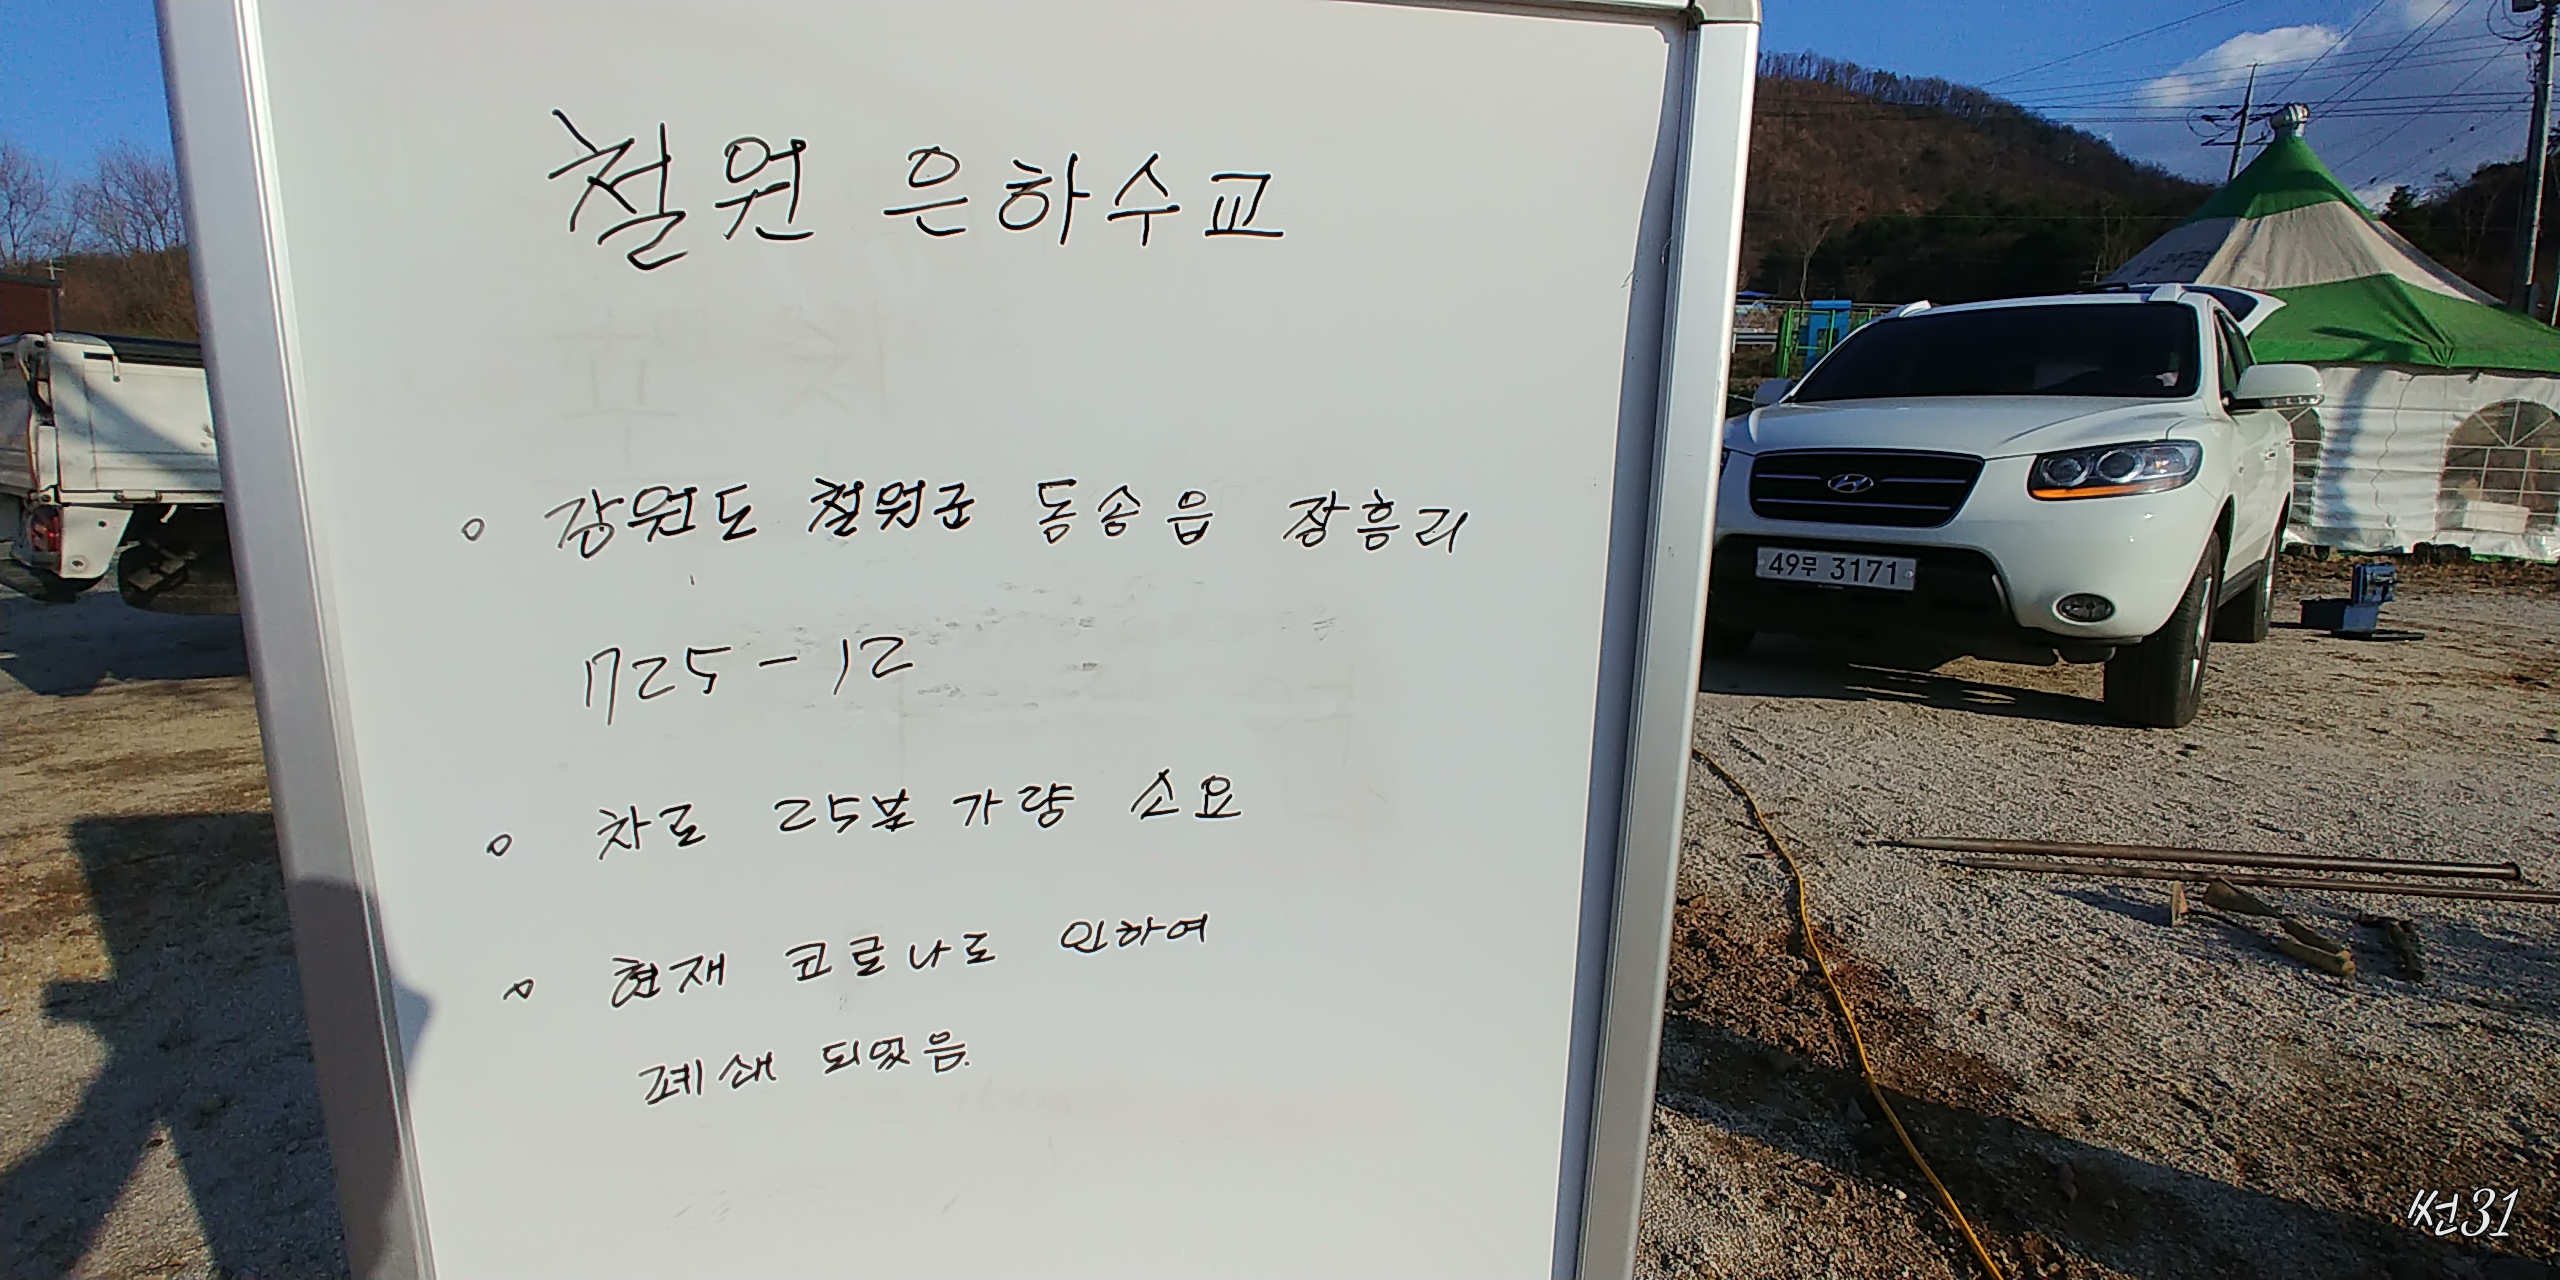 철원 은하수교
○ 강원도 철원군 동송읍 장흥리
725-12
○ 차로 25분 가량 소요
○ 현재 코로나로 인하여
폐쇄 되었음.
49무 3171
썬31